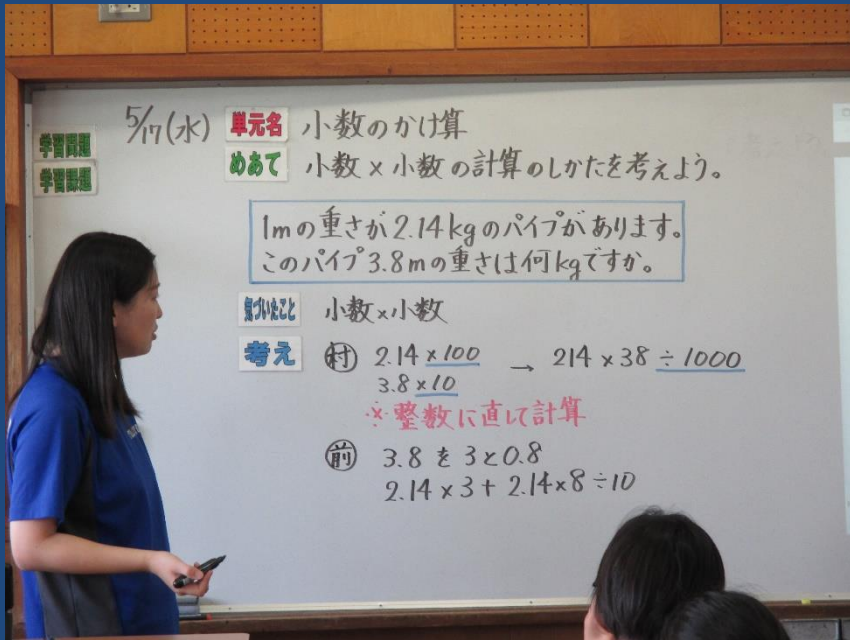 5/17(水) 単元名 小数のかけ算
学習課題
学習課題
めあて 小数×小数の計算のしかたを考えよう。
1mの重さが2.14kgのパイプがあります。
このパイプ3.8mの重さは何kgですか。
気づいたこと 小数×小数
考え ㊥村 2.14×100 → 214×38÷1000
3.8×10
※整数に直して計算
前 3.8を3と0.8
2.14×3+2.14×8÷10